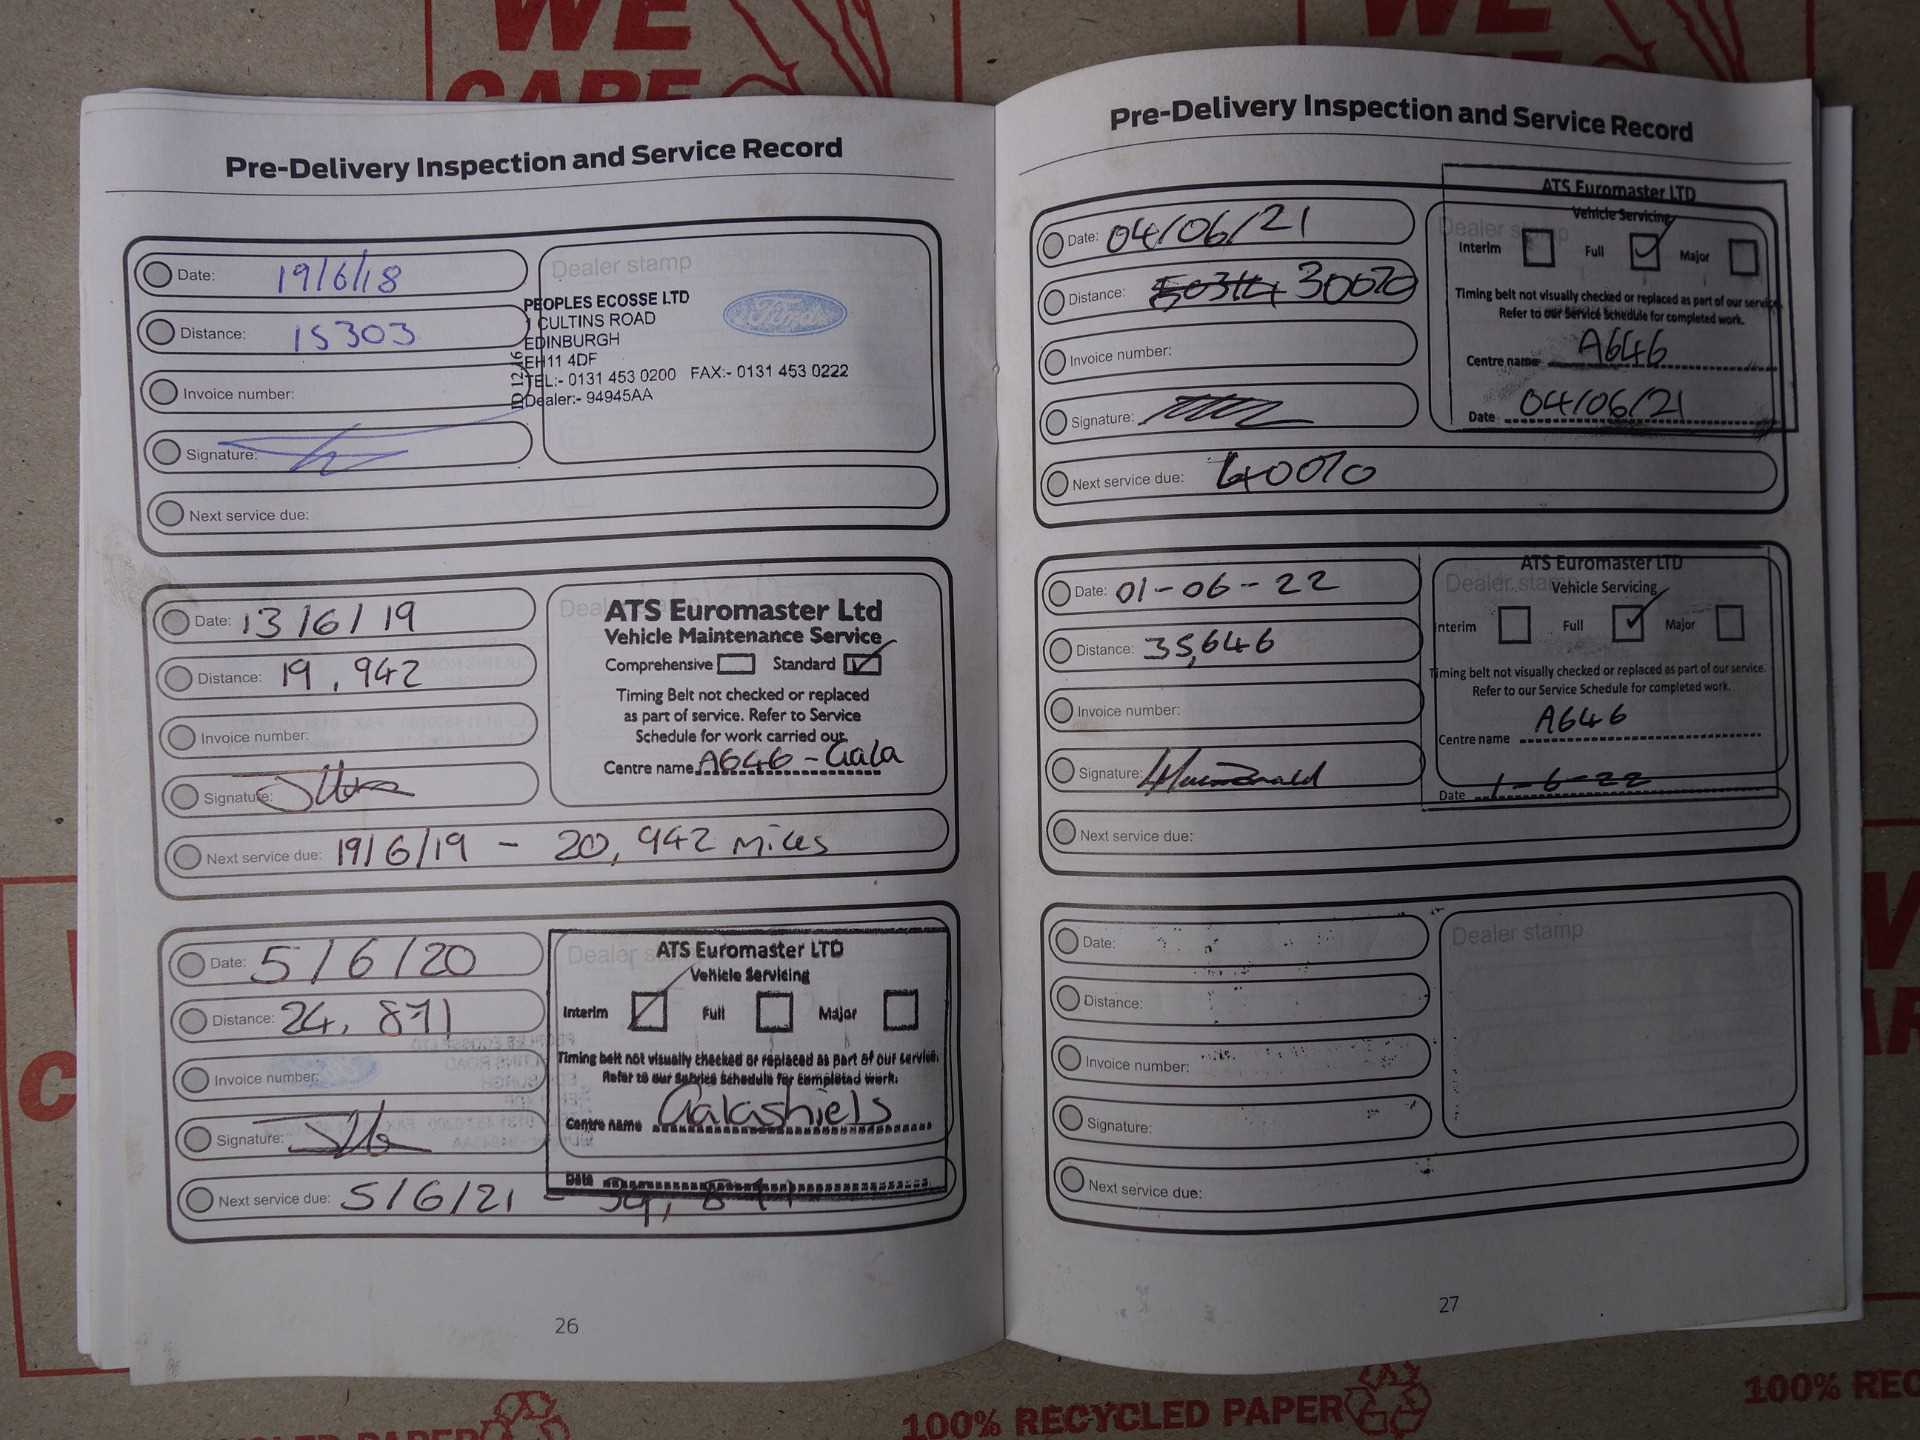 WE
CARE
WE
Pre-Delivery Inspection and Service Record
Date: 19/6/18
Distance: 15303
Invoice number:
Signature:
Next service due:
Dealer stamp
PEOPLES ECOSSE LTD
1 CULTINS ROAD
EDINBURGH
EH11 4DF
TEL:- 0131 453 0200 FAX:- 0131 453 0222
Dealer:- 94945AA
ID 12/16
Ford
Date: 13/6/19
Distance: 19,942
Invoice number:
Signature:
Next service due: 19/6/19 - 20,942 miles
ATS Euromaster Ltd
Vehicle Maintenance Service
Comprehensive Standard
Timing Belt not checked or replaced
as part of service. Refer to Service
Schedule for work carried out.
Centre name A646 - Gala
Date: 5/6/20
Distance: 24,871
Invoice number:
Signature:
Next service due: 5/6/21 -
Dealer
ATS Euromaster LTD
Vehicle Servicing
Interim Full Major
Timing belt not visually checked or replaced as part of our service.
Refer to our Service Schedule for completed work.
Centre name Galashiels
Date
26
Pre-Delivery Inspection and Service Record
Date: 04/06/21
Distance: 30070
Invoice number:
Signature:
Next service due: 40070
Dealer stamp
ATS Euromaster LTD
Vehicle Servicing
Interim Full Major
Timing belt not visually checked or replaced as part of our service.
Refer to our Service Schedule for completed work.
Centre name A646
Date 04/06/21
Date: 01-06-22
Distance: 35,646
Invoice number:
Signature: MacDonald
Next service due:
Dealer stamp
ATS Euromaster LTD
Vehicle Servicing
Interim Full Major
Timing belt not visually checked or replaced as part of our service.
Refer to our Service Schedule for completed work.
Centre name A646
Date 1-6-22
Date:
Distance:
Invoice number:
Signature:
Next service due:
Dealer stamp
27
100% RECYCLED PAPER
100% REC